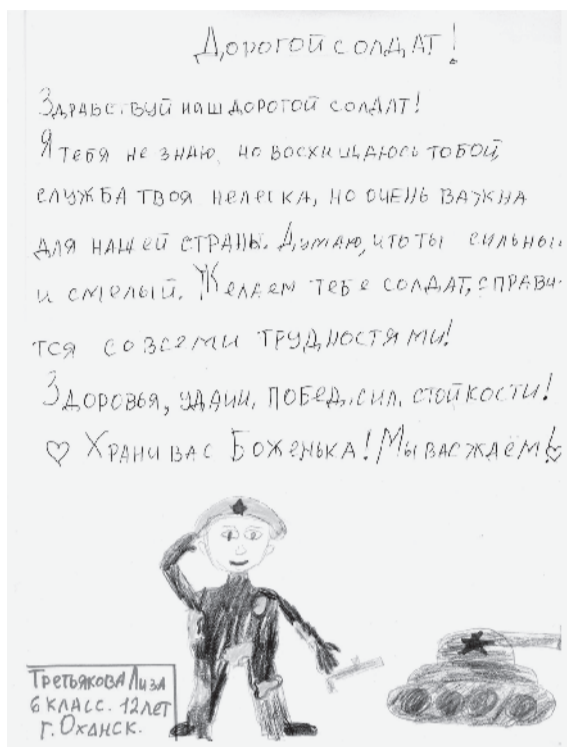 Дорогой солдат!
Здравствуй наш дорогой солдат!
Я тебя не знаю, но восхищаюсь тобой,
служба твоя нелегка, но очень важна
для нашей страны. Думаю, что ты сильный
и смелый. Желаем тебе солдат, справи-
тся со всеми трудностями!
Здоровья, удачи, побед, сил, стойкости!
♡ Храни вас Боженька! Мы вас ждём!♡
Третьякова Лиза
6 класс. 12 лет
г. Оханск.